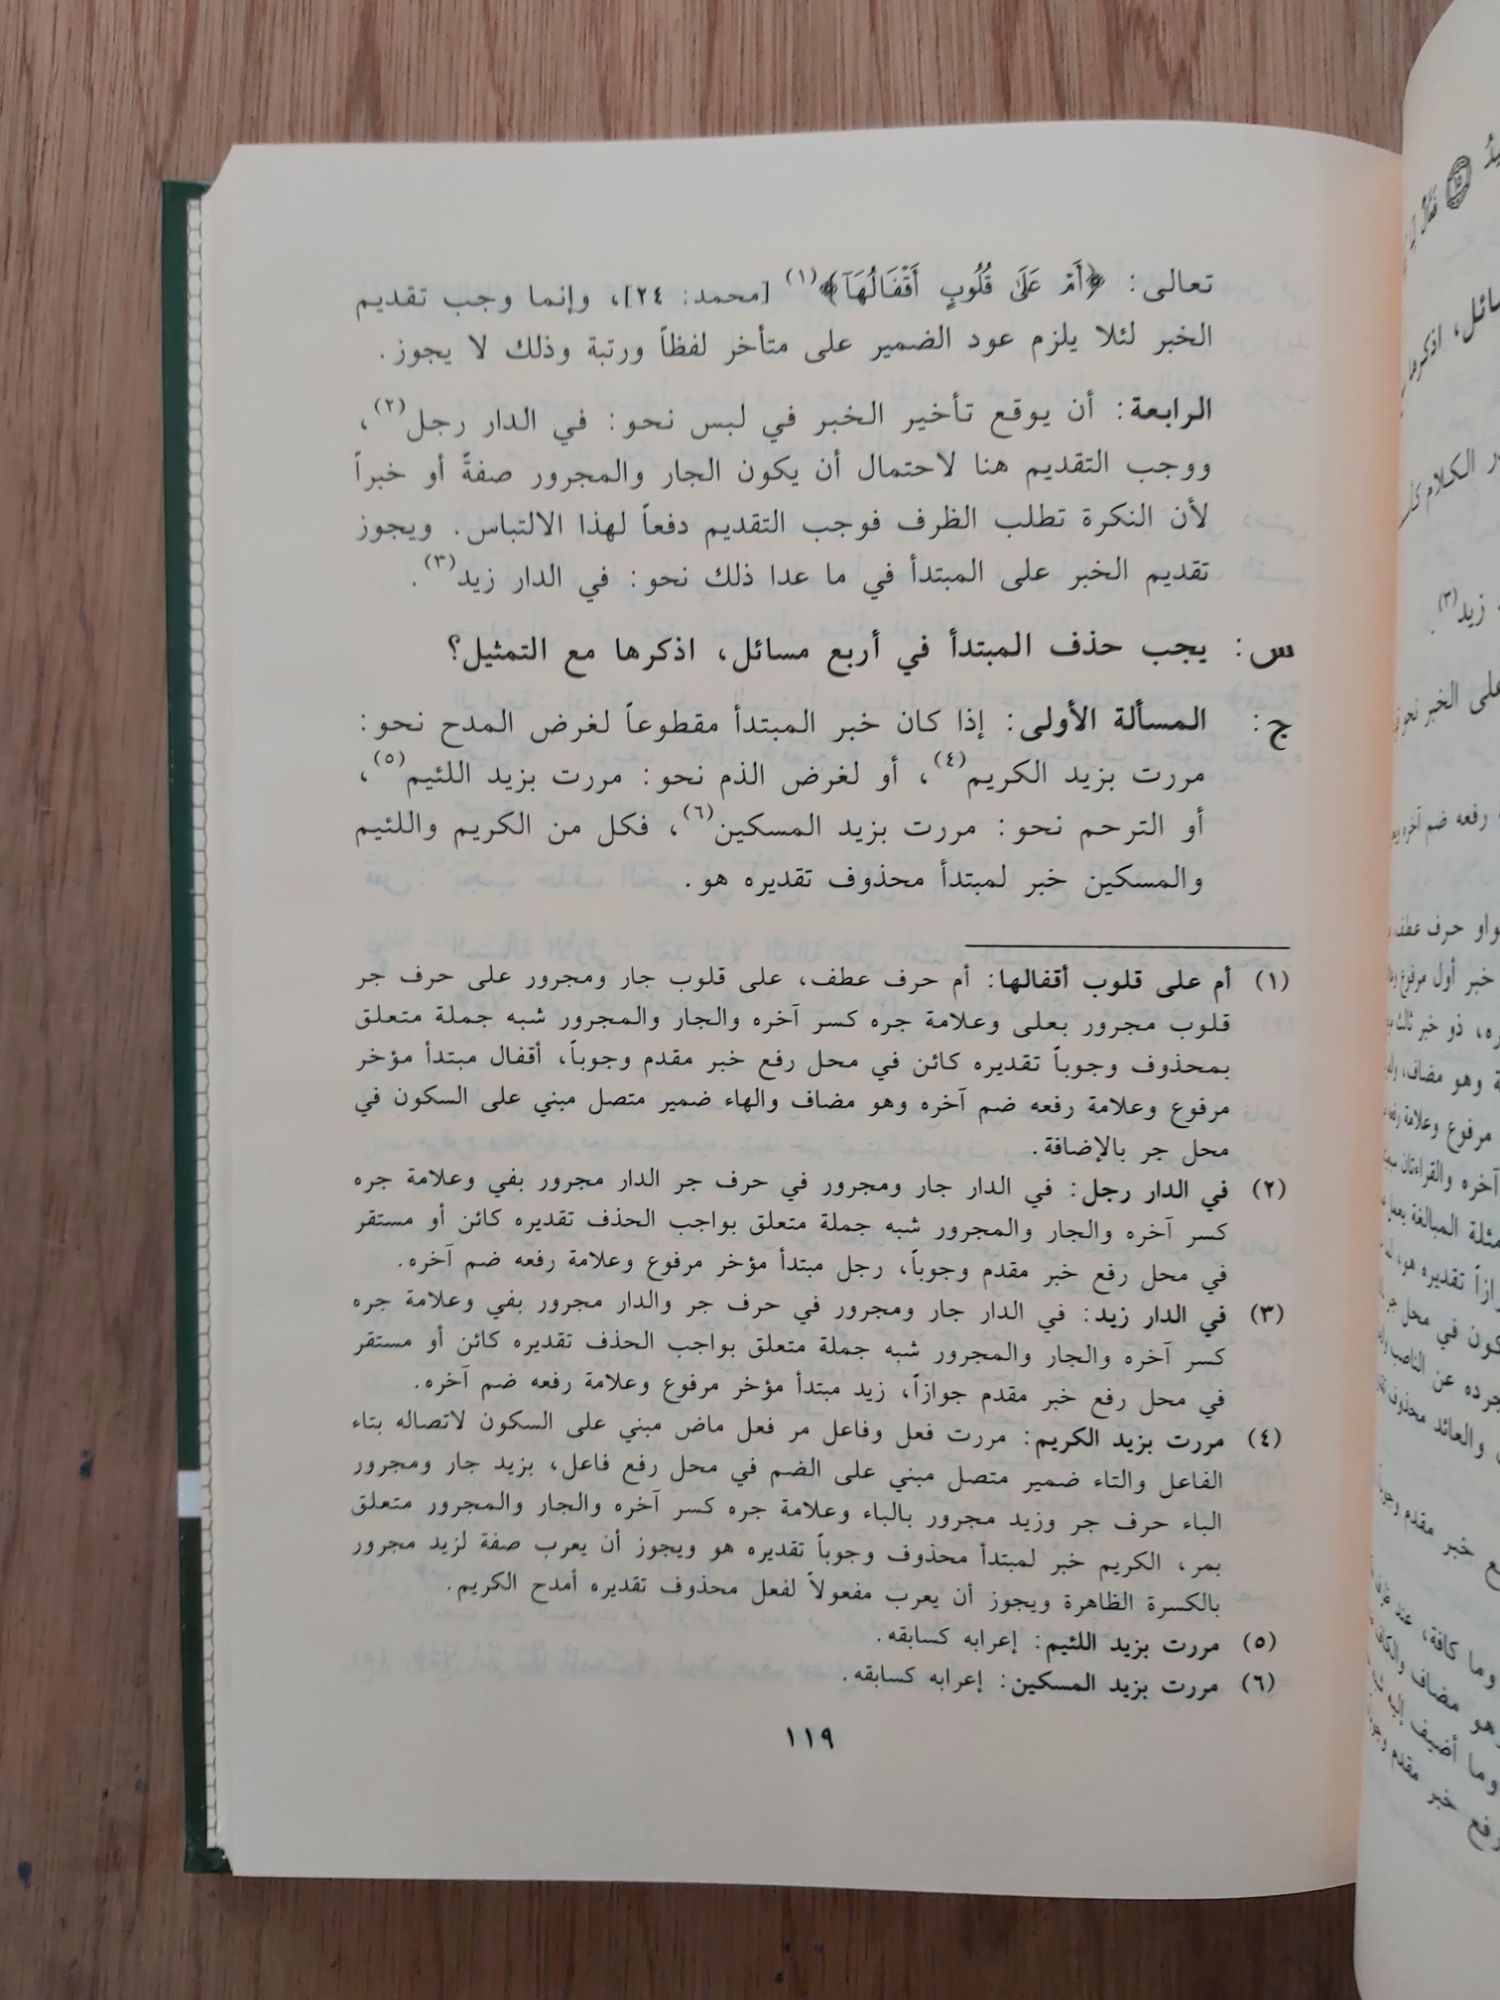 تعالى: ﴿أَمْ عَلَىٰ قُلُوبٍ أَقْفَالُهَآ﴾(١) [محمد: ٢٤]، وإنما وجب تقديم
الخبر لئلا يلزم عود الضمير على متأخر لفظاً ورتبة وذلك لا يجوز.
الرابعة: أن يوقع تأخير الخبر في لبس نحو: في الدار رجل(٢)،
ووجب التقديم هنا لاحتمال أن يكون الجار والمجرور صفةً أو خبراً
لأن النكرة تطلب الظرف فوجب التقديم دفعاً لهذا الالتباس. ويجوز
تقديم الخبر على المبتدأ في ما عدا ذلك نحو: في الدار زيد(٣).
س: يجب حذف المبتدأ في أربع مسائل، اذكرها مع التمثيل؟
ج: المسألة الأولى: إذا كان خبر المبتدأ مقطوعاً لغرض المدح نحو:
مررت بزيد الكريم(٤)، أو لغرض الذم نحو: مررت بزيد اللئيم(٥)،
أو الترحم نحو: مررت بزيد المسكين(٦)، فكل من الكريم واللئيم
والمسكين خبر لمبتدأ محذوف تقديره هو.
(١) أم على قلوب أقفالها: أم حرف عطف، على قلوب جار ومجرور على حرف جر
قلوب مجرور بعلى وعلامة جره كسر آخره والجار والمجرور شبه جملة متعلق
بمحذوف وجوباً تقديره كائن في محل رفع خبر مقدم وجوباً، أقفال مبتدأ مؤخر
مرفوع وعلامة رفعه ضم آخره وهو مضاف والهاء ضمير متصل مبني على السكون في
محل جر بالإضافة.
(٢) في الدار رجل: في الدار جار ومجرور في حرف جر الدار مجرور بفي وعلامة جره
كسر آخره والجار والمجرور شبه جملة متعلق بواجب الحذف تقديره كائن أو مستقر
في محل رفع خبر مقدم وجوباً، رجل مبتدأ مؤخر مرفوع وعلامة رفعه ضم آخره.
(٣) في الدار زيد: في الدار جار ومجرور في حرف جر والدار مجرور بفي وعلامة جره
كسر آخره والجار والمجرور شبه جملة متعلق بواجب الحذف تقديره كائن أو مستقر
في محل رفع خبر مقدم جوازاً، زيد مبتدأ مؤخر مرفوع وعلامة رفعه ضم آخره.
(٤) مررت بزيد الكريم: مررت فعل وفاعل مر فعل ماض مبني على السكون لاتصاله بتاء
الفاعل والتاء ضمير متصل مبني على الضم في محل رفع فاعل، بزيد جار ومجرور
الباء حرف جر وزيد مجرور بالباء وعلامة جره كسر آخره والجار والمجرور متعلق
بمر، الكريم خبر لمبتدأ محذوف وجوباً تقديره هو ويجوز أن يعرب صفة لزيد مجرور
بالكسرة الظاهرة ويجوز أن يعرب مفعولاً لفعل محذوف تقديره أمدح الكريم.
(٥) مررت بزيد اللئيم: إعرابه كسابقه.
(٦) مررت بزيد المسكين: إعرابه كسابقه.
١١٩